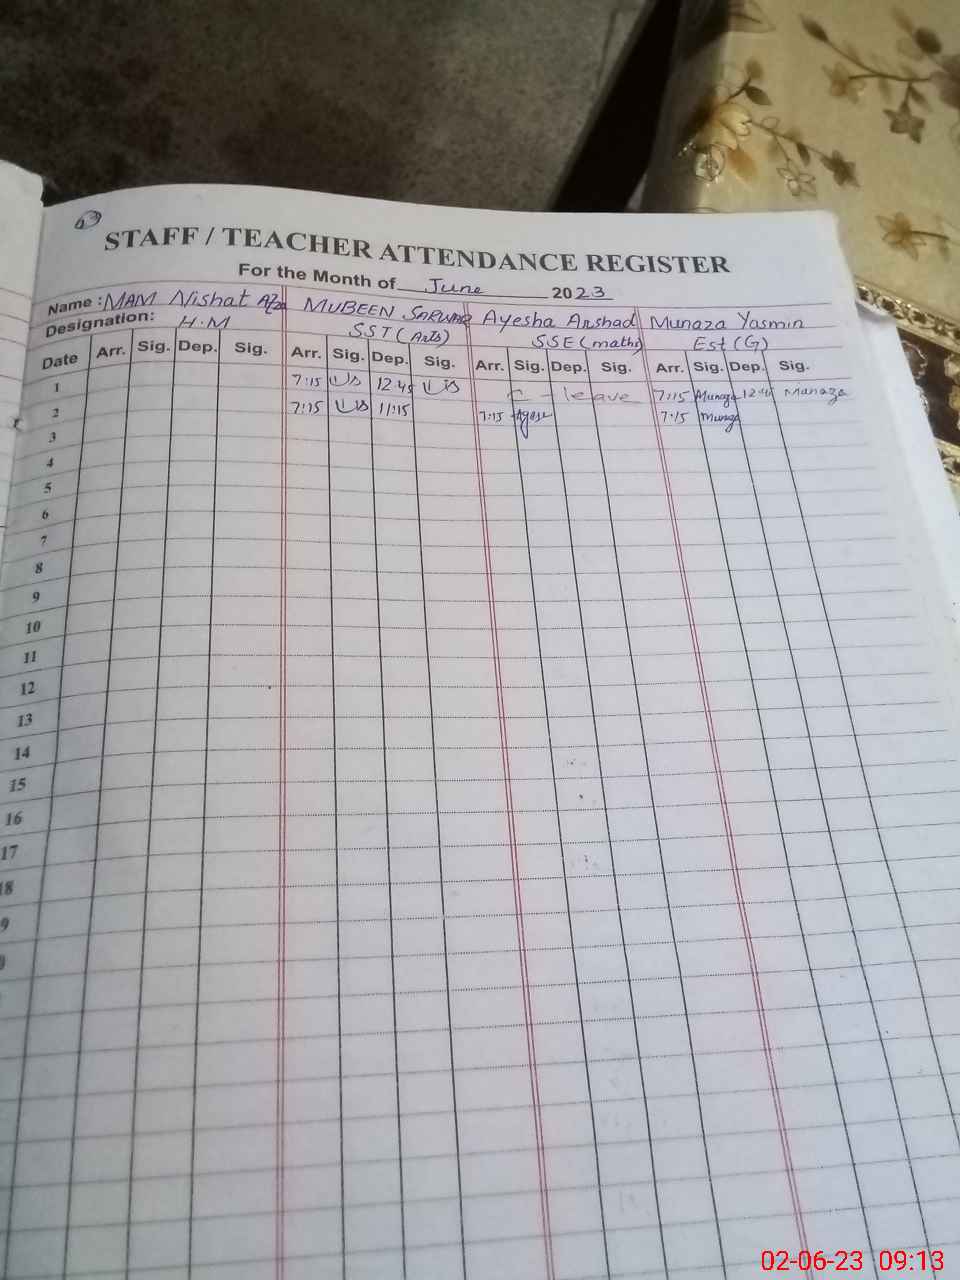 63
STAFF / TEACHER ATTENDANCE REGISTER
For the Month of June 2023
Name : MAM Nishat MUBEEN SARWAR Ayesha Arshad Munaza Yasmin
Designation: H.M SST (Arts) SSE (maths) Est (G)
Date Arr. Sig. Dep. Sig. Arr. Sig. Dep. Sig. Arr. Sig. Dep. Sig. Arr. Sig. Dep. Sig.
1 7:15 12:45 C - leave 7:15 Munaza 12:45 Munaza
2 7:15 11:15 7:15 7:15 Munaza
3
4
5
6
7
8
9
10
11
12
13
14
15
16
17
18
9
02-06-23 09:13